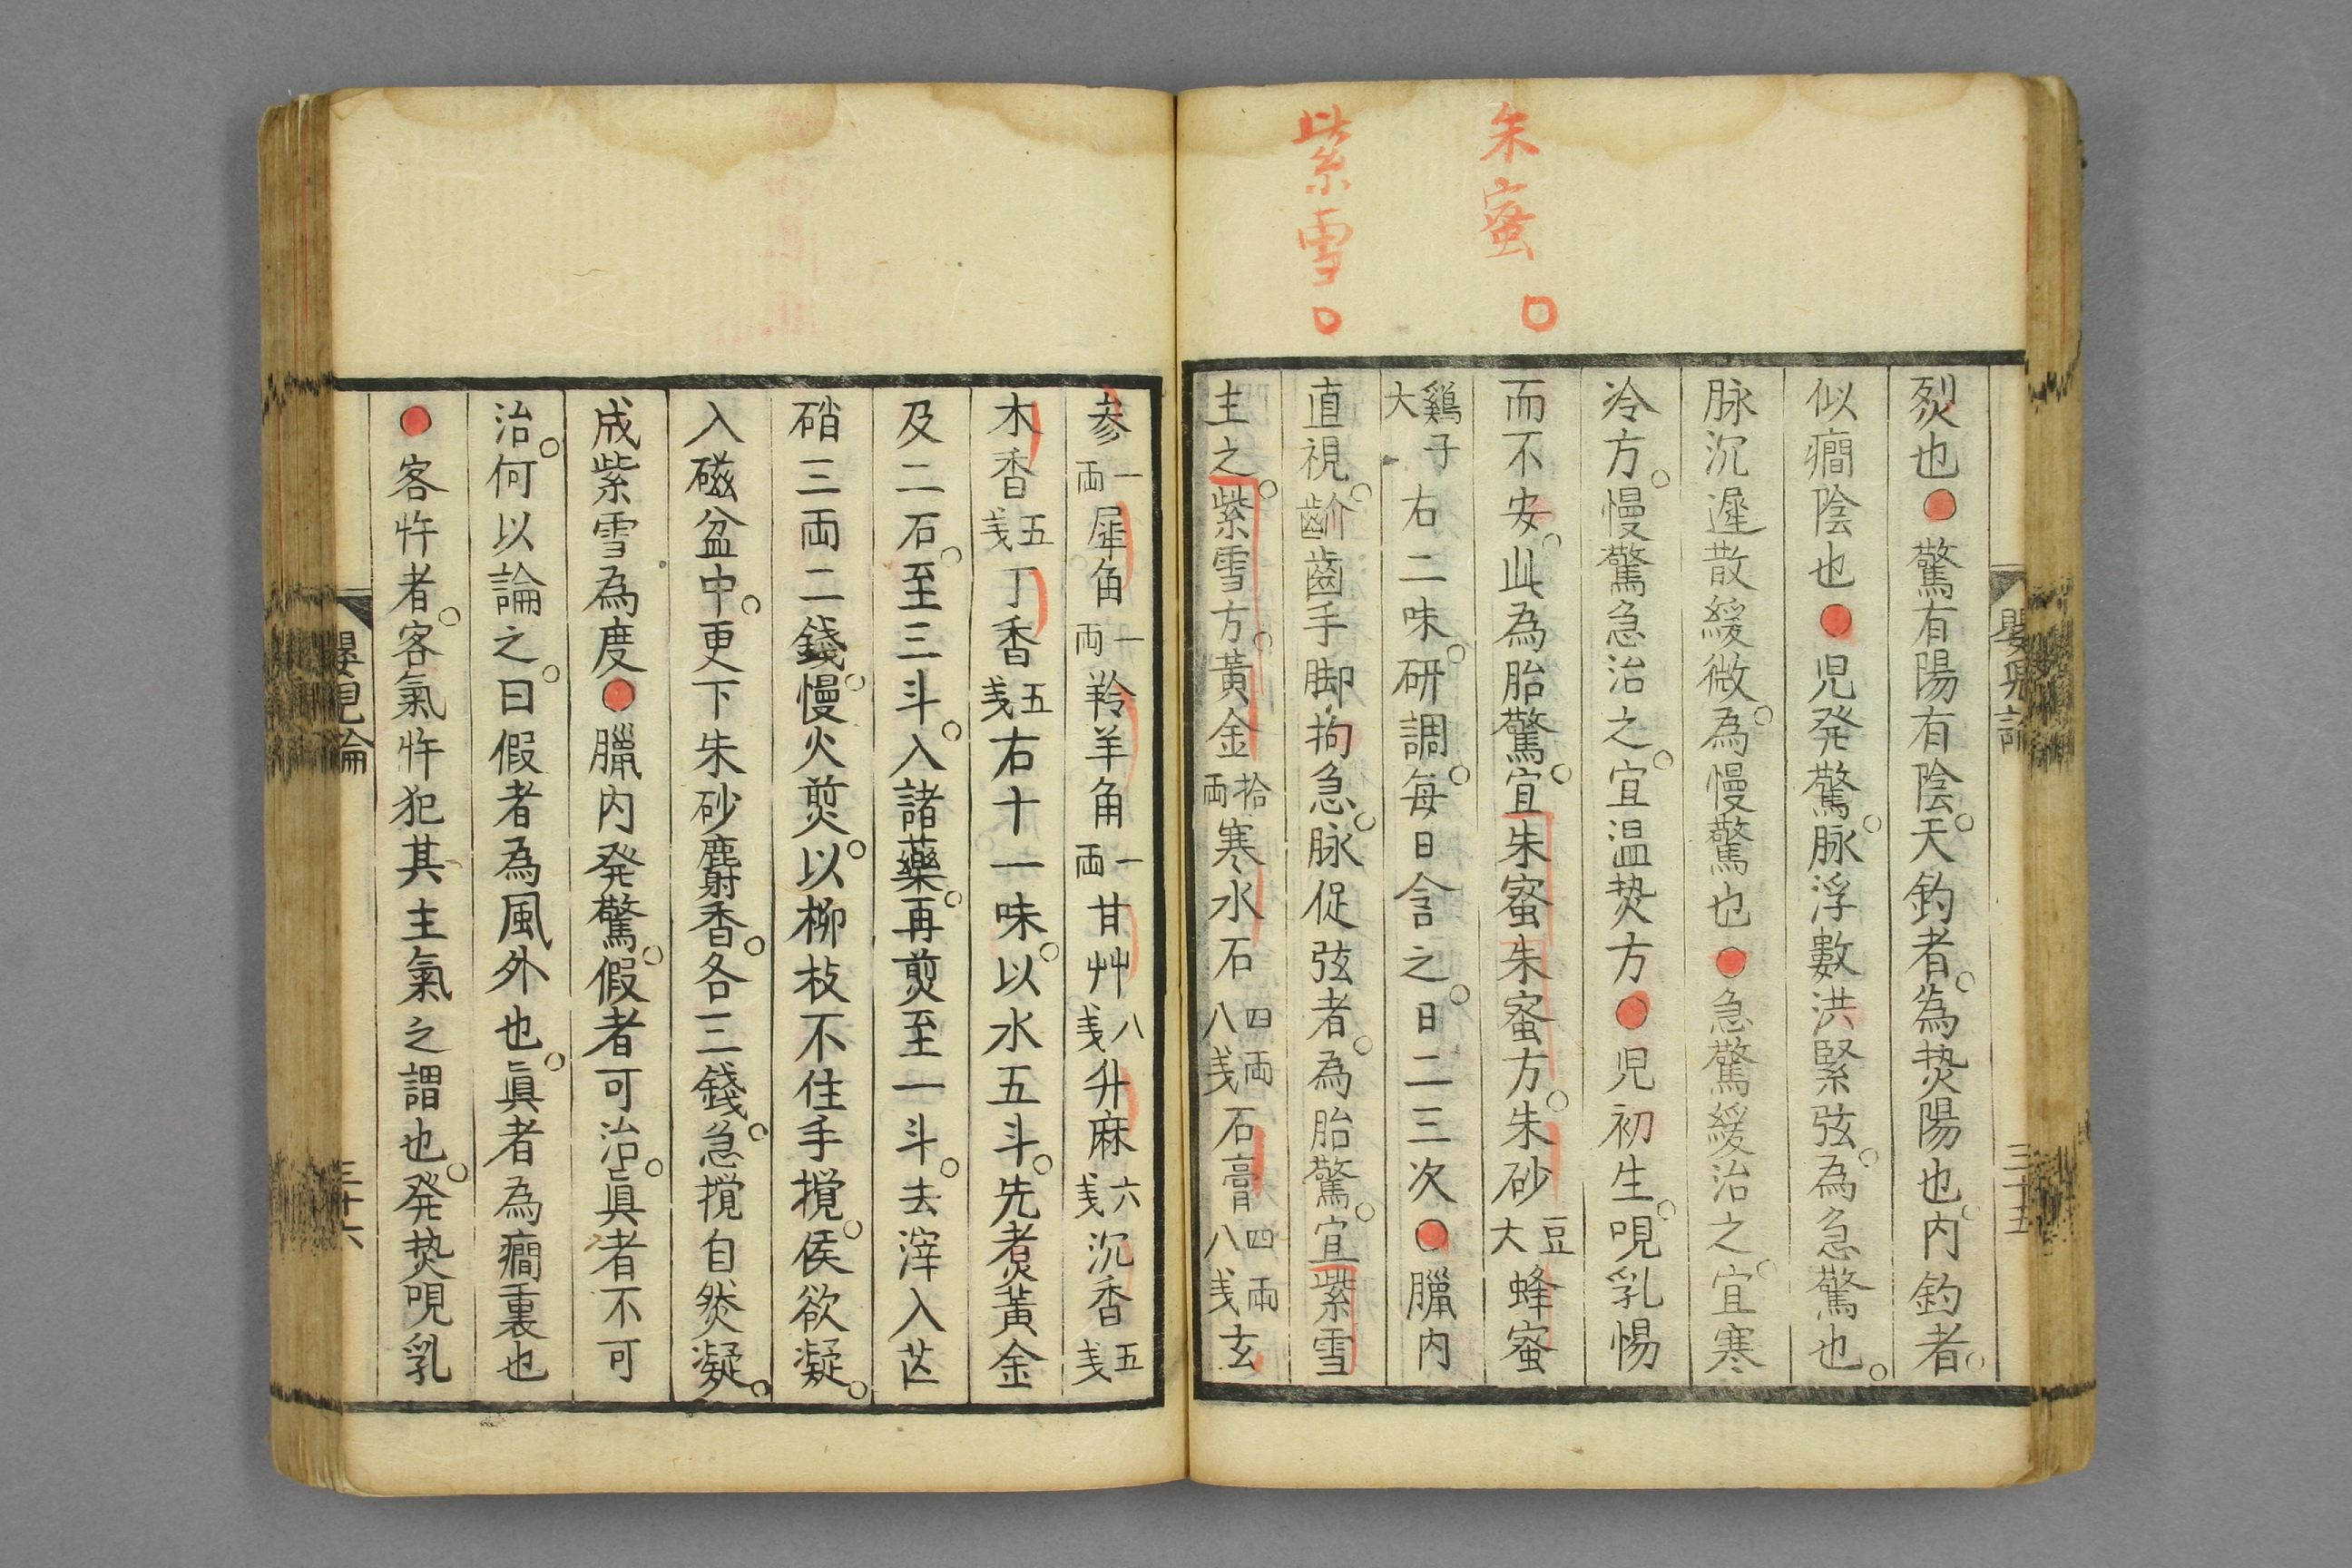 朱蜜
紫雪
烈也●驚有陽有陰。天釣者。為热陽也。内釣者。
似癇陰也●児発驚。脉浮數洪緊弦。為急驚也。
脉沉遲散緩微。為慢驚也●急驚緩治之。宜寒
冷方。慢驚急治之。宜温热方●児初生。哯乳惕
而不安。此為胎驚。宜朱蜜朱蜜方。朱砂豆大蜂蜜
鷄子大右二味。研調。每日含之。日二三次●臘内
直視。齘齒手脚拘急。脉促弦者。為胎驚。宜紫雪
主之。紫雪方。黃金拾両寒水石四両八戔石膏四両八戔玄
嬰児論
三十五
参一両犀角一両羚羊角一両甘艸八戔升麻六戔沉香五戔
木香五戔丁香五戔右十一味。以水五斗。先煮黃金
及二石。至三斗。入諸藥。再煎至一斗。去滓入芒
硝三両二錢。慢火煎。以柳枝不住手攪。侯欲凝。
入磁盆中。更下朱砂麝香。各三錢。急攪自然凝。
成紫雪為度●臘内発驚。假者可治。眞者不可
治。何以論之。曰假者為風外也。眞者為癇裏也
●客忤者。客氣忤犯其主氣之謂也。発热哯乳
嬰児論
三十六